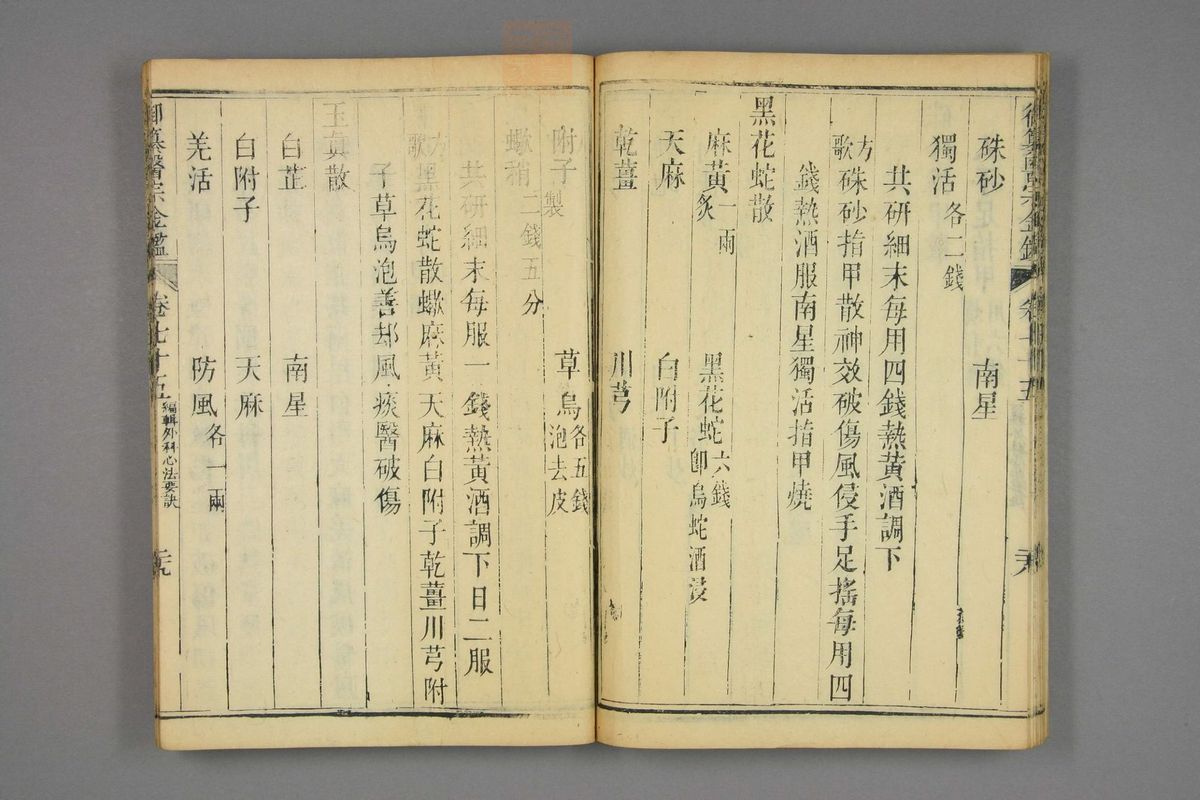 硃砂 南星
獨活各二錢
共研細末每用四錢熱黃酒調下
方歌硃砂指甲散神效破傷風侵手足搖每用四
錢熱酒服南星獨活指甲燒
黑花蛇散
麻黃一兩炙 黑花蛇六錢卽烏蛇酒浸
天麻 白附子
乾薑 川芎
附子製 草烏各五錢泡去皮
蠍稍二錢五分
共研細末每服一錢熱黃酒調下日二服
方歌黑花蛇散蠍麻黃天麻白附子乾薑川芎附
子草烏泡善却風痰醫破傷
玉真散
白芷 南星
白附子 天麻
羌活 防風各一兩
御纂醫宗金鑑 卷七十五 編輯外科心法要訣 三九